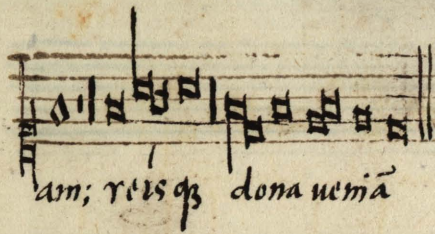 am; reisqꝫ dona ueniā